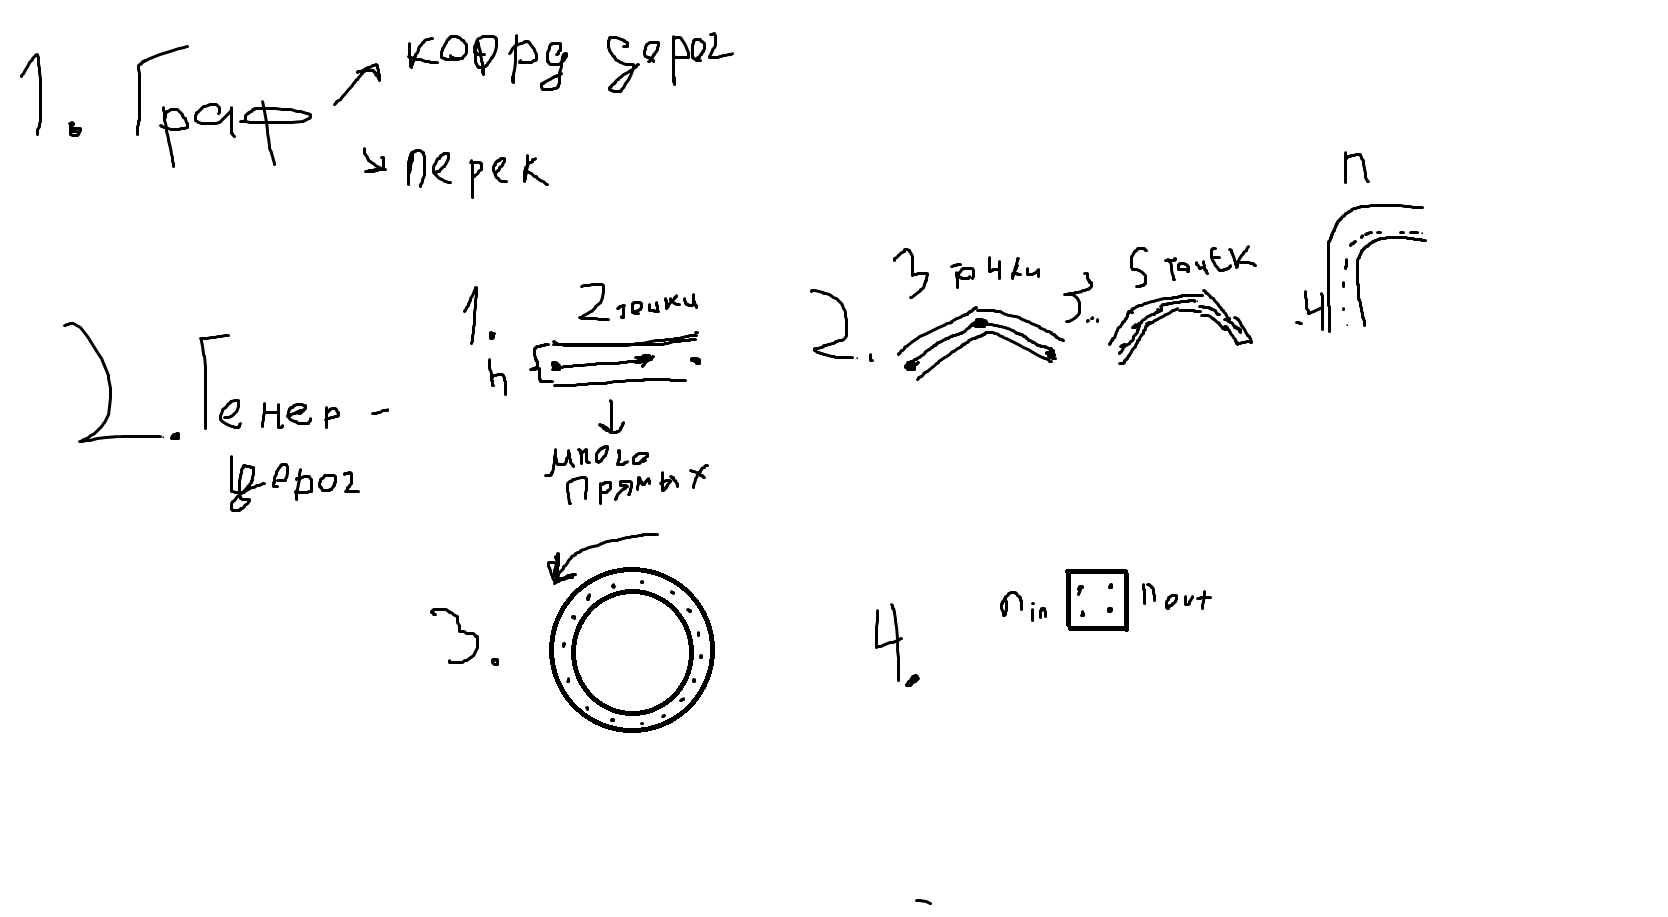 1. Граф
коорд дорог
перек
2. Генер-
дорог
1. 2 точки
h
много
прямых
2. 3 точки
3.. 5 точек
.4 n
3.
4. n in n out